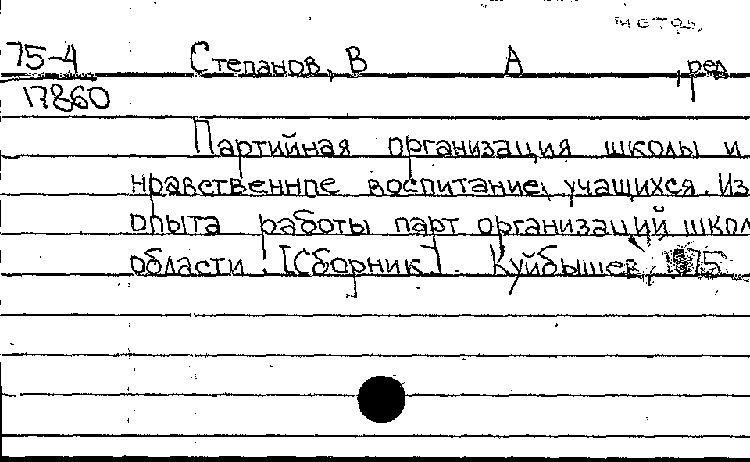 метод.
75-4 Степанов, В А , ред
17860
Партийная организация школы и
нравственное воспитание учащихся. Из
опыта работы парт организаций школ
области : [Сборник]. Куйбышев, 1975